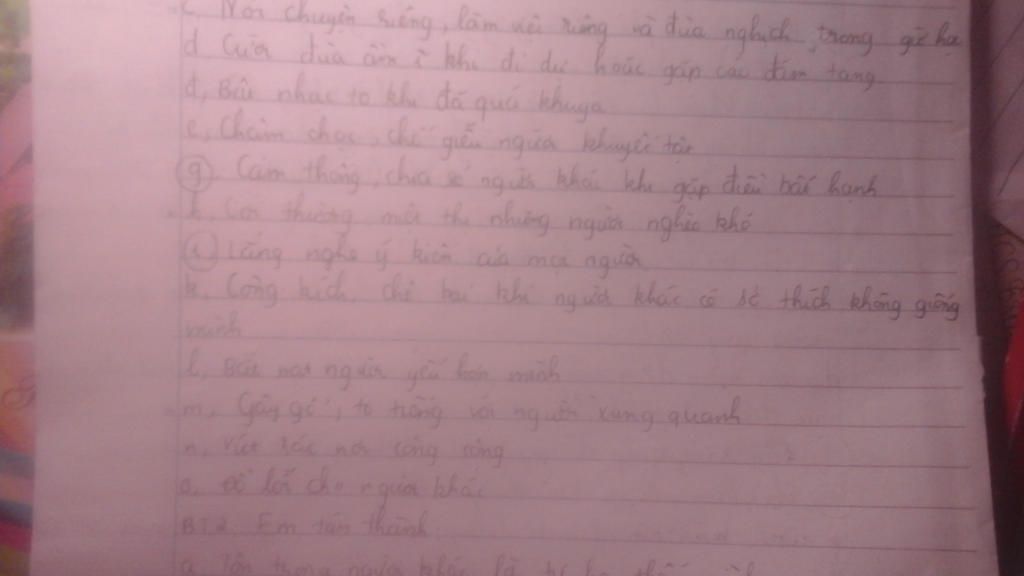 c, Nói chuyện riêng, làm việc riêng và đùa nghịch trong giờ học
d Cười đùa ầm ĩ khi đi dự hoặc gặp các đám tang
đ, Bật nhạc to khi đã quá khuya
e, Châm chọc, chế giễu người khuyết tật
g, Cảm thông, chia sẻ người khác khi gặp điều bất hạnh
h, Coi thường, miệt thị những người nghèo khó
i, Lắng nghe ý kiến của mọi người
k, Công kích, chê bai khi người khác có sở thích không giống
mình
l, Bắt nạt người yếu hơn mình
m, Gây gổ, to tiếng với người xung quanh
n, Vứt rác nơi công cộng
o, Đổ lỗi cho người khác
BT2 Em tán thành
a, Tôn trọng người khác là tự